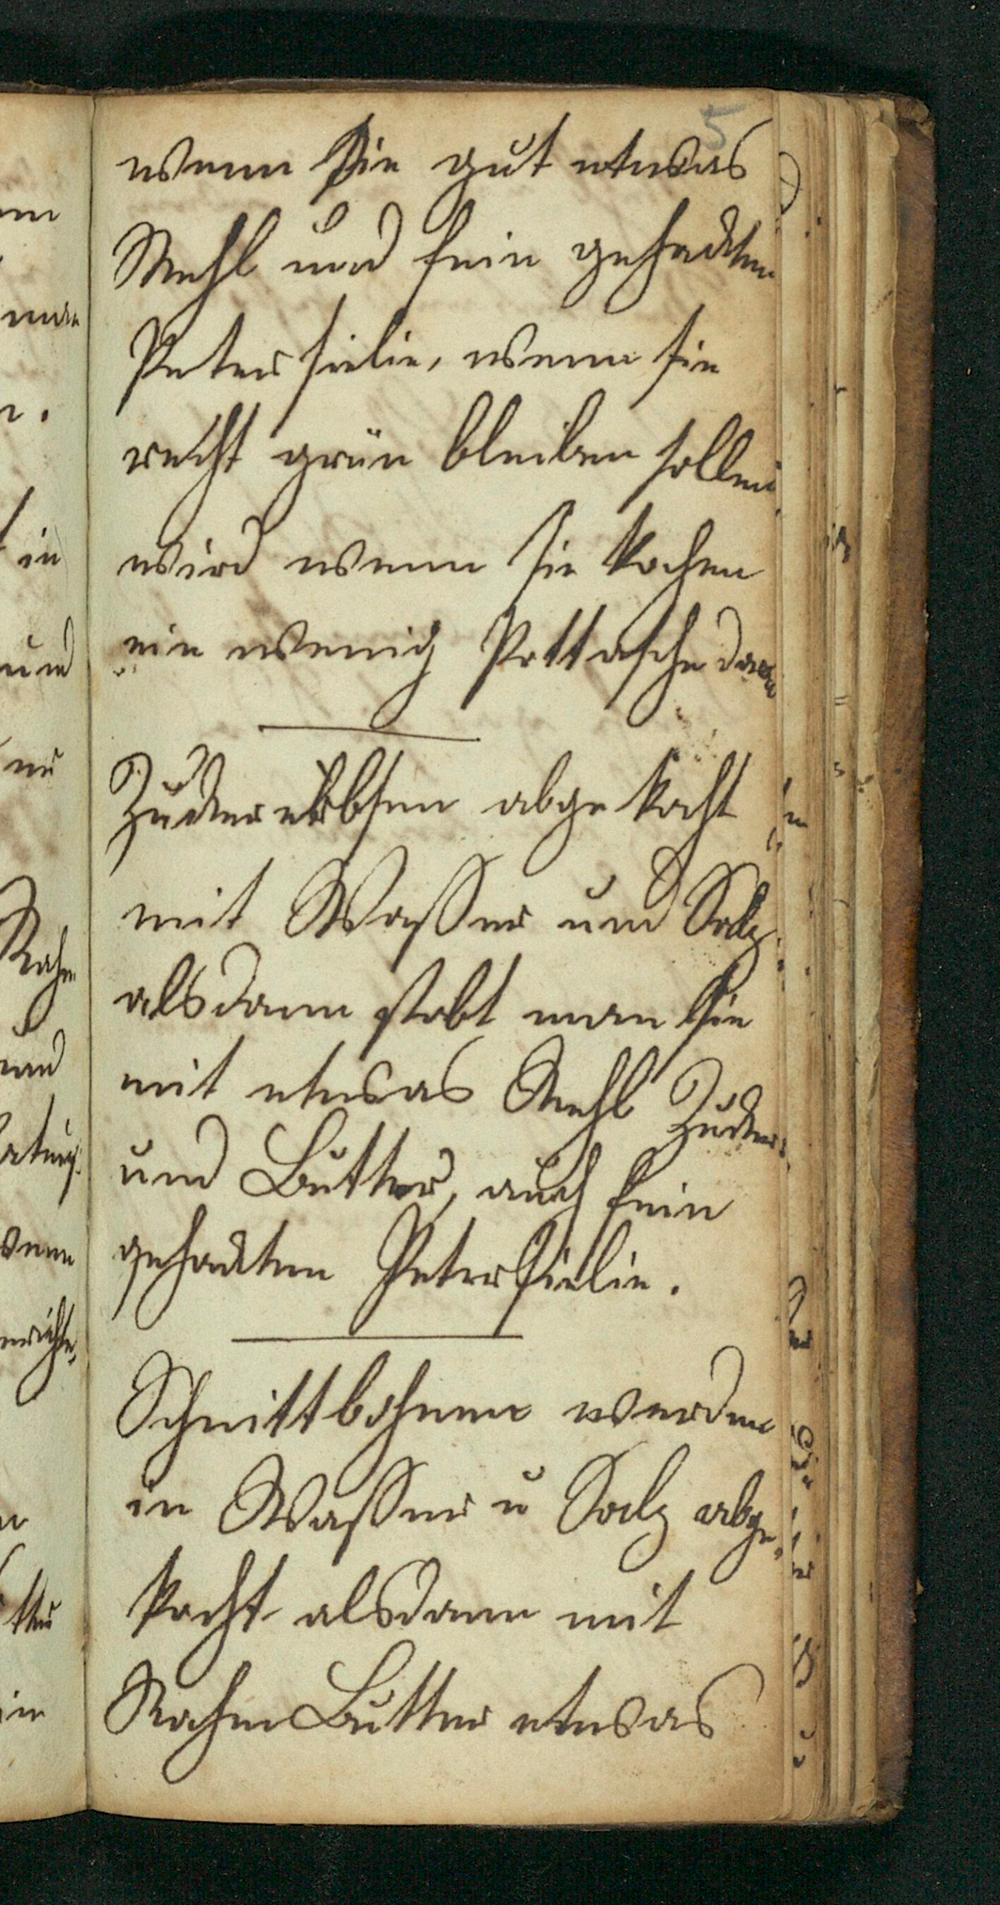 5
wenn sie gut etwas
Mehl und fein gehackten
Petersielie, wenn sie
recht grün bleiben sollen
wird wenn sie kochen
ein wenig Pottasche daran
Zuckererbsen abgekocht
mit Wasser und Salz
alsdann stobt man sie
mit etwas Mehl Zucker
und Butter, auch fein
gehackten Petersielie.
Schnittbohnen werden
in Wasser u Salz abge-
kocht alsdann mit
Rahm Butter etwas